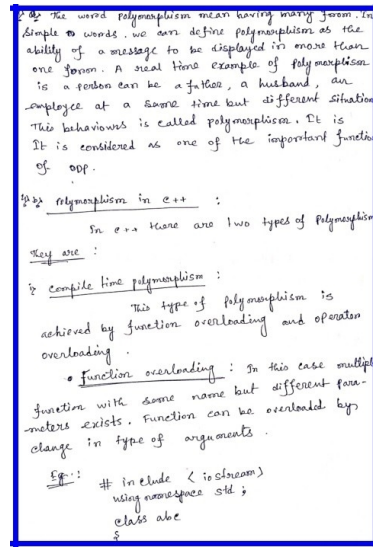 The word Polymorphism mean having many form. In
simple words, we can define polymorphism as the
ability of a message to be displayed in more than
one form. A real time example of polymorphism
is a person can be a father, a husband, an
employee at a same time but different situation
This behaviours is called polymorphism. It is
It is considered as one of the important functio
of OOP.
Polymorphism in c++ :
In c++ there are two types of Polymorphism
They are :
i) compile time polymorphism :
This type of polymorphism is
achieved by function overloading and operator
overloading.
• function overloading : In this case multiple
function with same name but different para-
meters exists. Function can be overloaded by
change in type of arguments.
Eg.: # include <iostream>
using namespace std ;
class abc
{